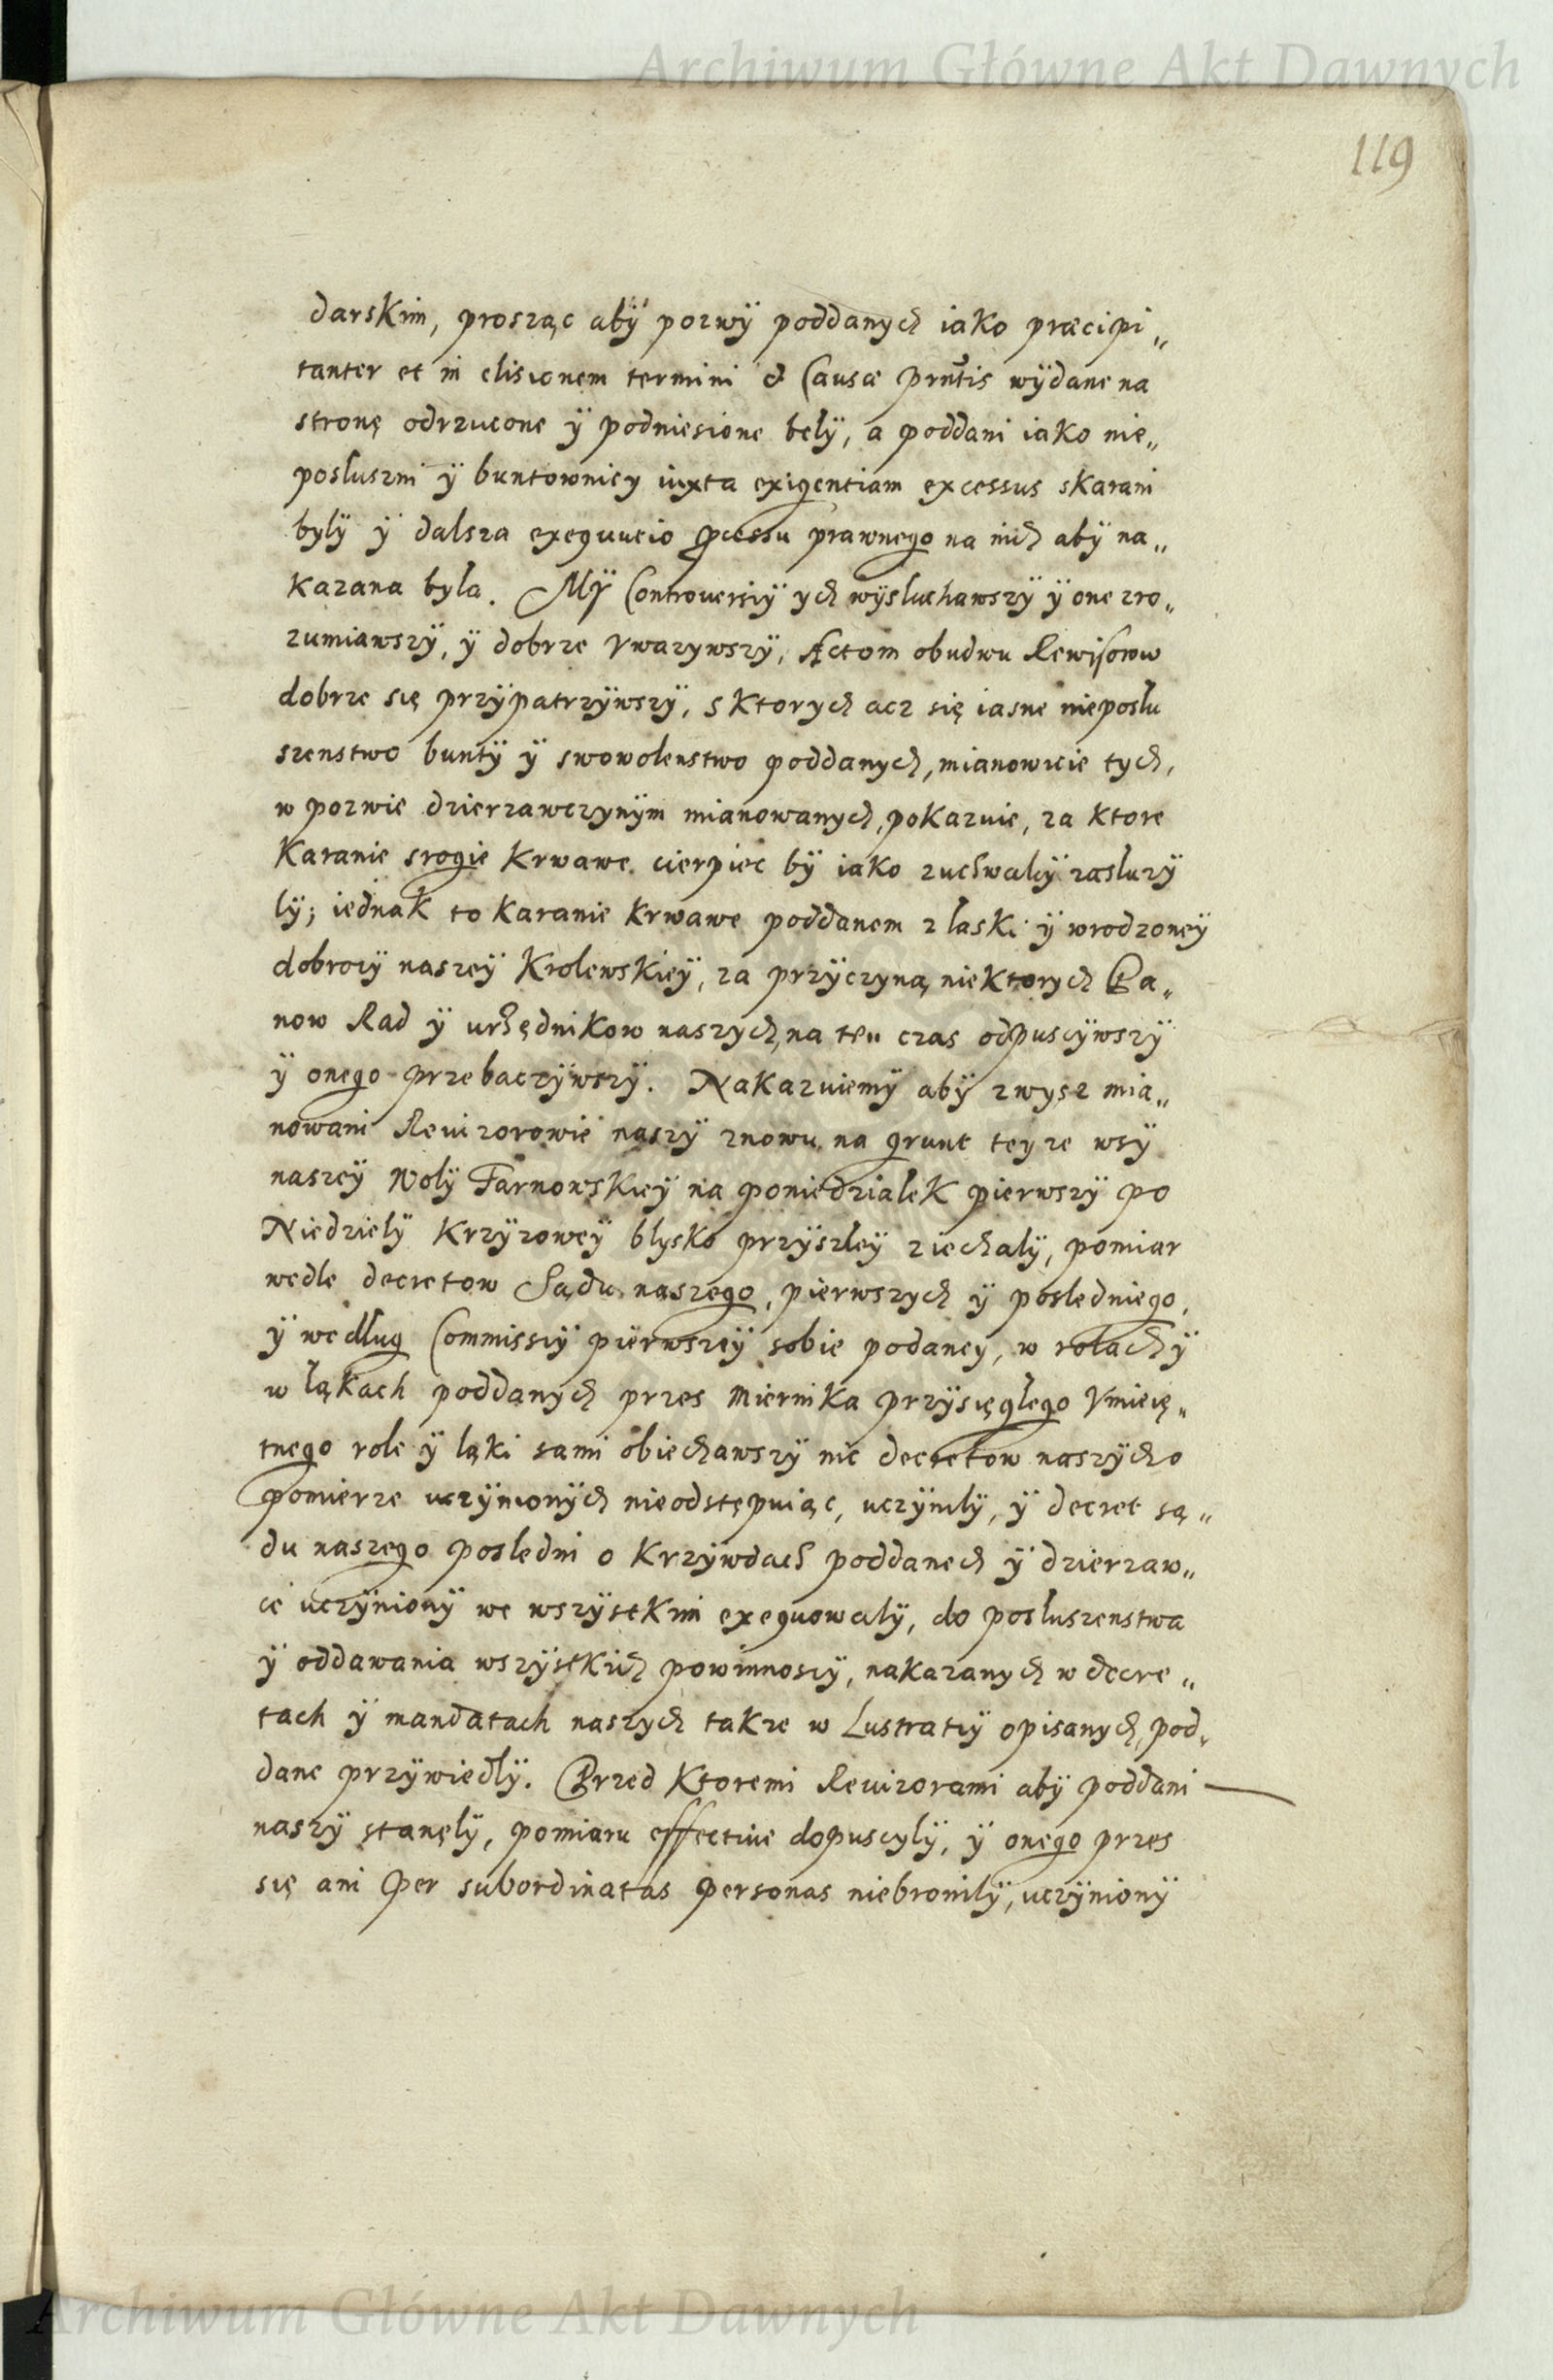 Archiwum Główne Akt Dawnych
119
darskim, prosząc abÿ pozwÿ poddanych iako præcipi„
tanter et in elisionem termini & Causæ prntis wÿdane na
stronę odrzucone ÿ podniesione belÿ, a poddani iako nie„
posluszni ÿ buntownicy iuxta exigentiam excessus skarani
bylÿ ÿ dalsza exequucio pcessu prawnego na nich abÿ na„
kazana byla. Mÿ Controuersiÿ ych wÿsluchawszÿ ÿ one zro„
zumiawszÿ, ÿ dobrze Vwazywszÿ, Actom obudwu Rewisorow
dobrze się przÿpatrzÿwszÿ, s ktorych acz się iasne nieposlu
szenstwo buntÿ ÿ swowolenstwo poddanych, mianowicie tych,
w pozwie dzierzawczynÿm mianowanych, pokazuie, za ktore
karanie srogie krwawe cierpiec bÿ iako zuchwalcÿ zasluzÿ
lÿ; iednak to karanie krwawe poddanem z laski ÿ wrodzoneÿ
dobrocÿ naszeÿ Krolewskieÿ, za przÿczÿną niektorych Pa„
now Rad ÿ urzędnikow naszych, na ten czas odpuscÿwszÿ
ÿ onego przebaczÿwszÿ. Nakazuiemÿ abÿ zwysz mia„
nowani Reuizorowie naszÿ znowu na grunt teyze wsÿ
naszeÿ Wolÿ Tarnowskieÿ na poniedzialek pierwszÿ po
Niedzielÿ Krzÿzoweÿ blysko przÿszleÿ ziechalÿ, pomiar
wedle decretow Sądu naszego, pierwszych ÿ posledniego,
ÿ wedlug Commissiÿ pierwszeÿ sobie podaney, w rolach ÿ
w ląkach poddanych przes Miernika przÿsięglego Vmieię„
tnego role ÿ ląki sami obiechawszÿ nic decretow naszÿch o
pomierze uczÿnionÿch nieodstępuiąc, uczÿnilÿ, ÿ decret są„
du naszego posledni o krzÿwdach poddanech ÿ dzierzaw„
ce uczÿnionÿ we wszÿstkim exequowalÿ, do posluszenstwa
ÿ oddawania wszÿstkich powinnoscÿ, nakazanych w decre„
tach ÿ mandatach naszych takze w Lustratiÿ opisanych, pod„
dane przÿwiedlÿ. Przed ktoremi Reuizorami abÿ poddani
naszÿ stanęlÿ, pomiaru effectiue dopuscylÿ, ÿ onego przes
się ani per subordinatas personas niebronilÿ, uczÿnionÿ
Archiwum Główne Akt Dawnych